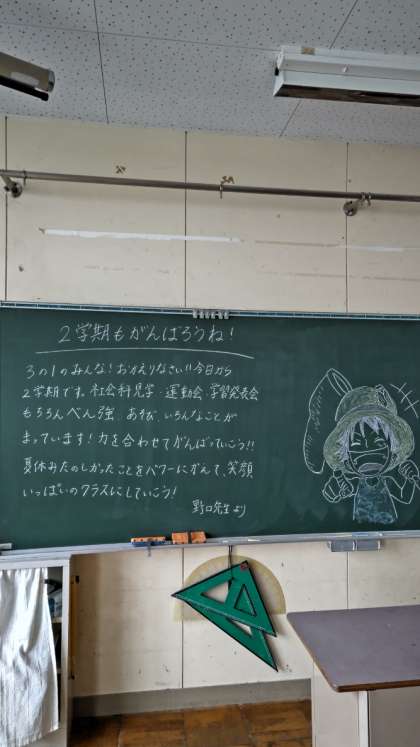 2学期もがんばろうね!
3の1のみんな!おかえりなさい!!今日から
2学期です。社会科見学・運動会・学習発表会
もちろんべん強、あそび、いろんなことが
まっています!力を合わせてがんばっていこう!!
夏休みたのしかったことをパワーにかえて、笑顔
いっぱいのクラスにしていこう!
野口先生より